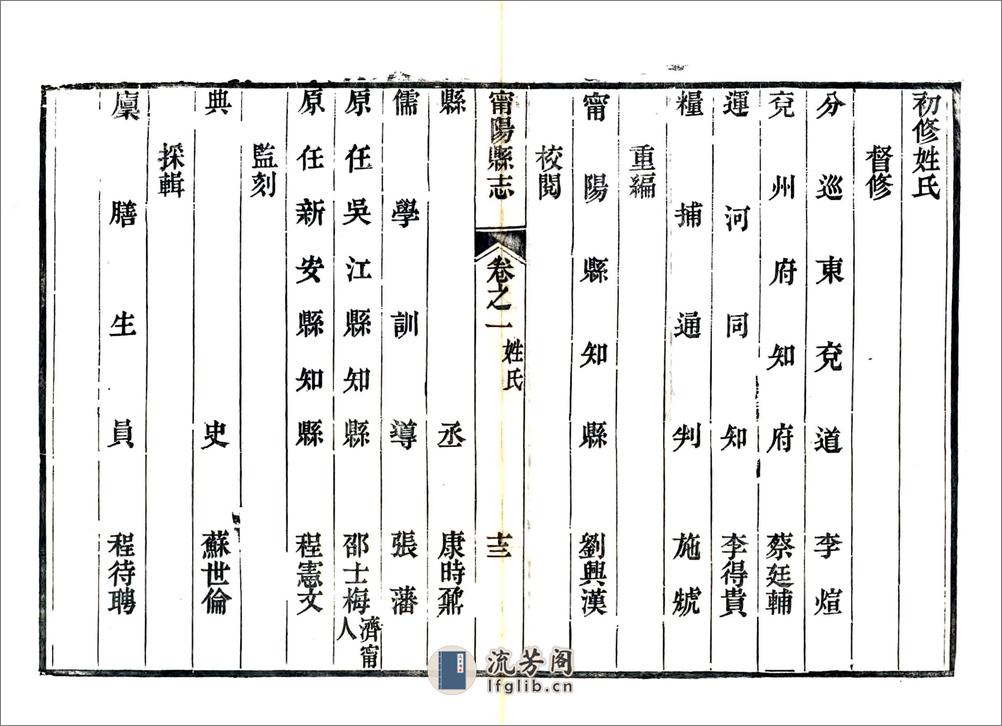 初修姓氏
督修
分巡東兗道 李煊
兗州府知府 蔡廷輔
運河同知 李得貴
糧捕通判 施
重編
甯陽縣知縣 劉興漢
校閱
甯陽縣志 卷之一 姓氏 十三
縣丞 康時鼐
儒學訓導 張藩
原任吳江縣知縣 邵士梅 濟甯人
原任新安縣知縣 程憲文
監刻
典史 蘇世倫
採輯
廩膳生員 程待聘
流芳阁
lfglib.cn